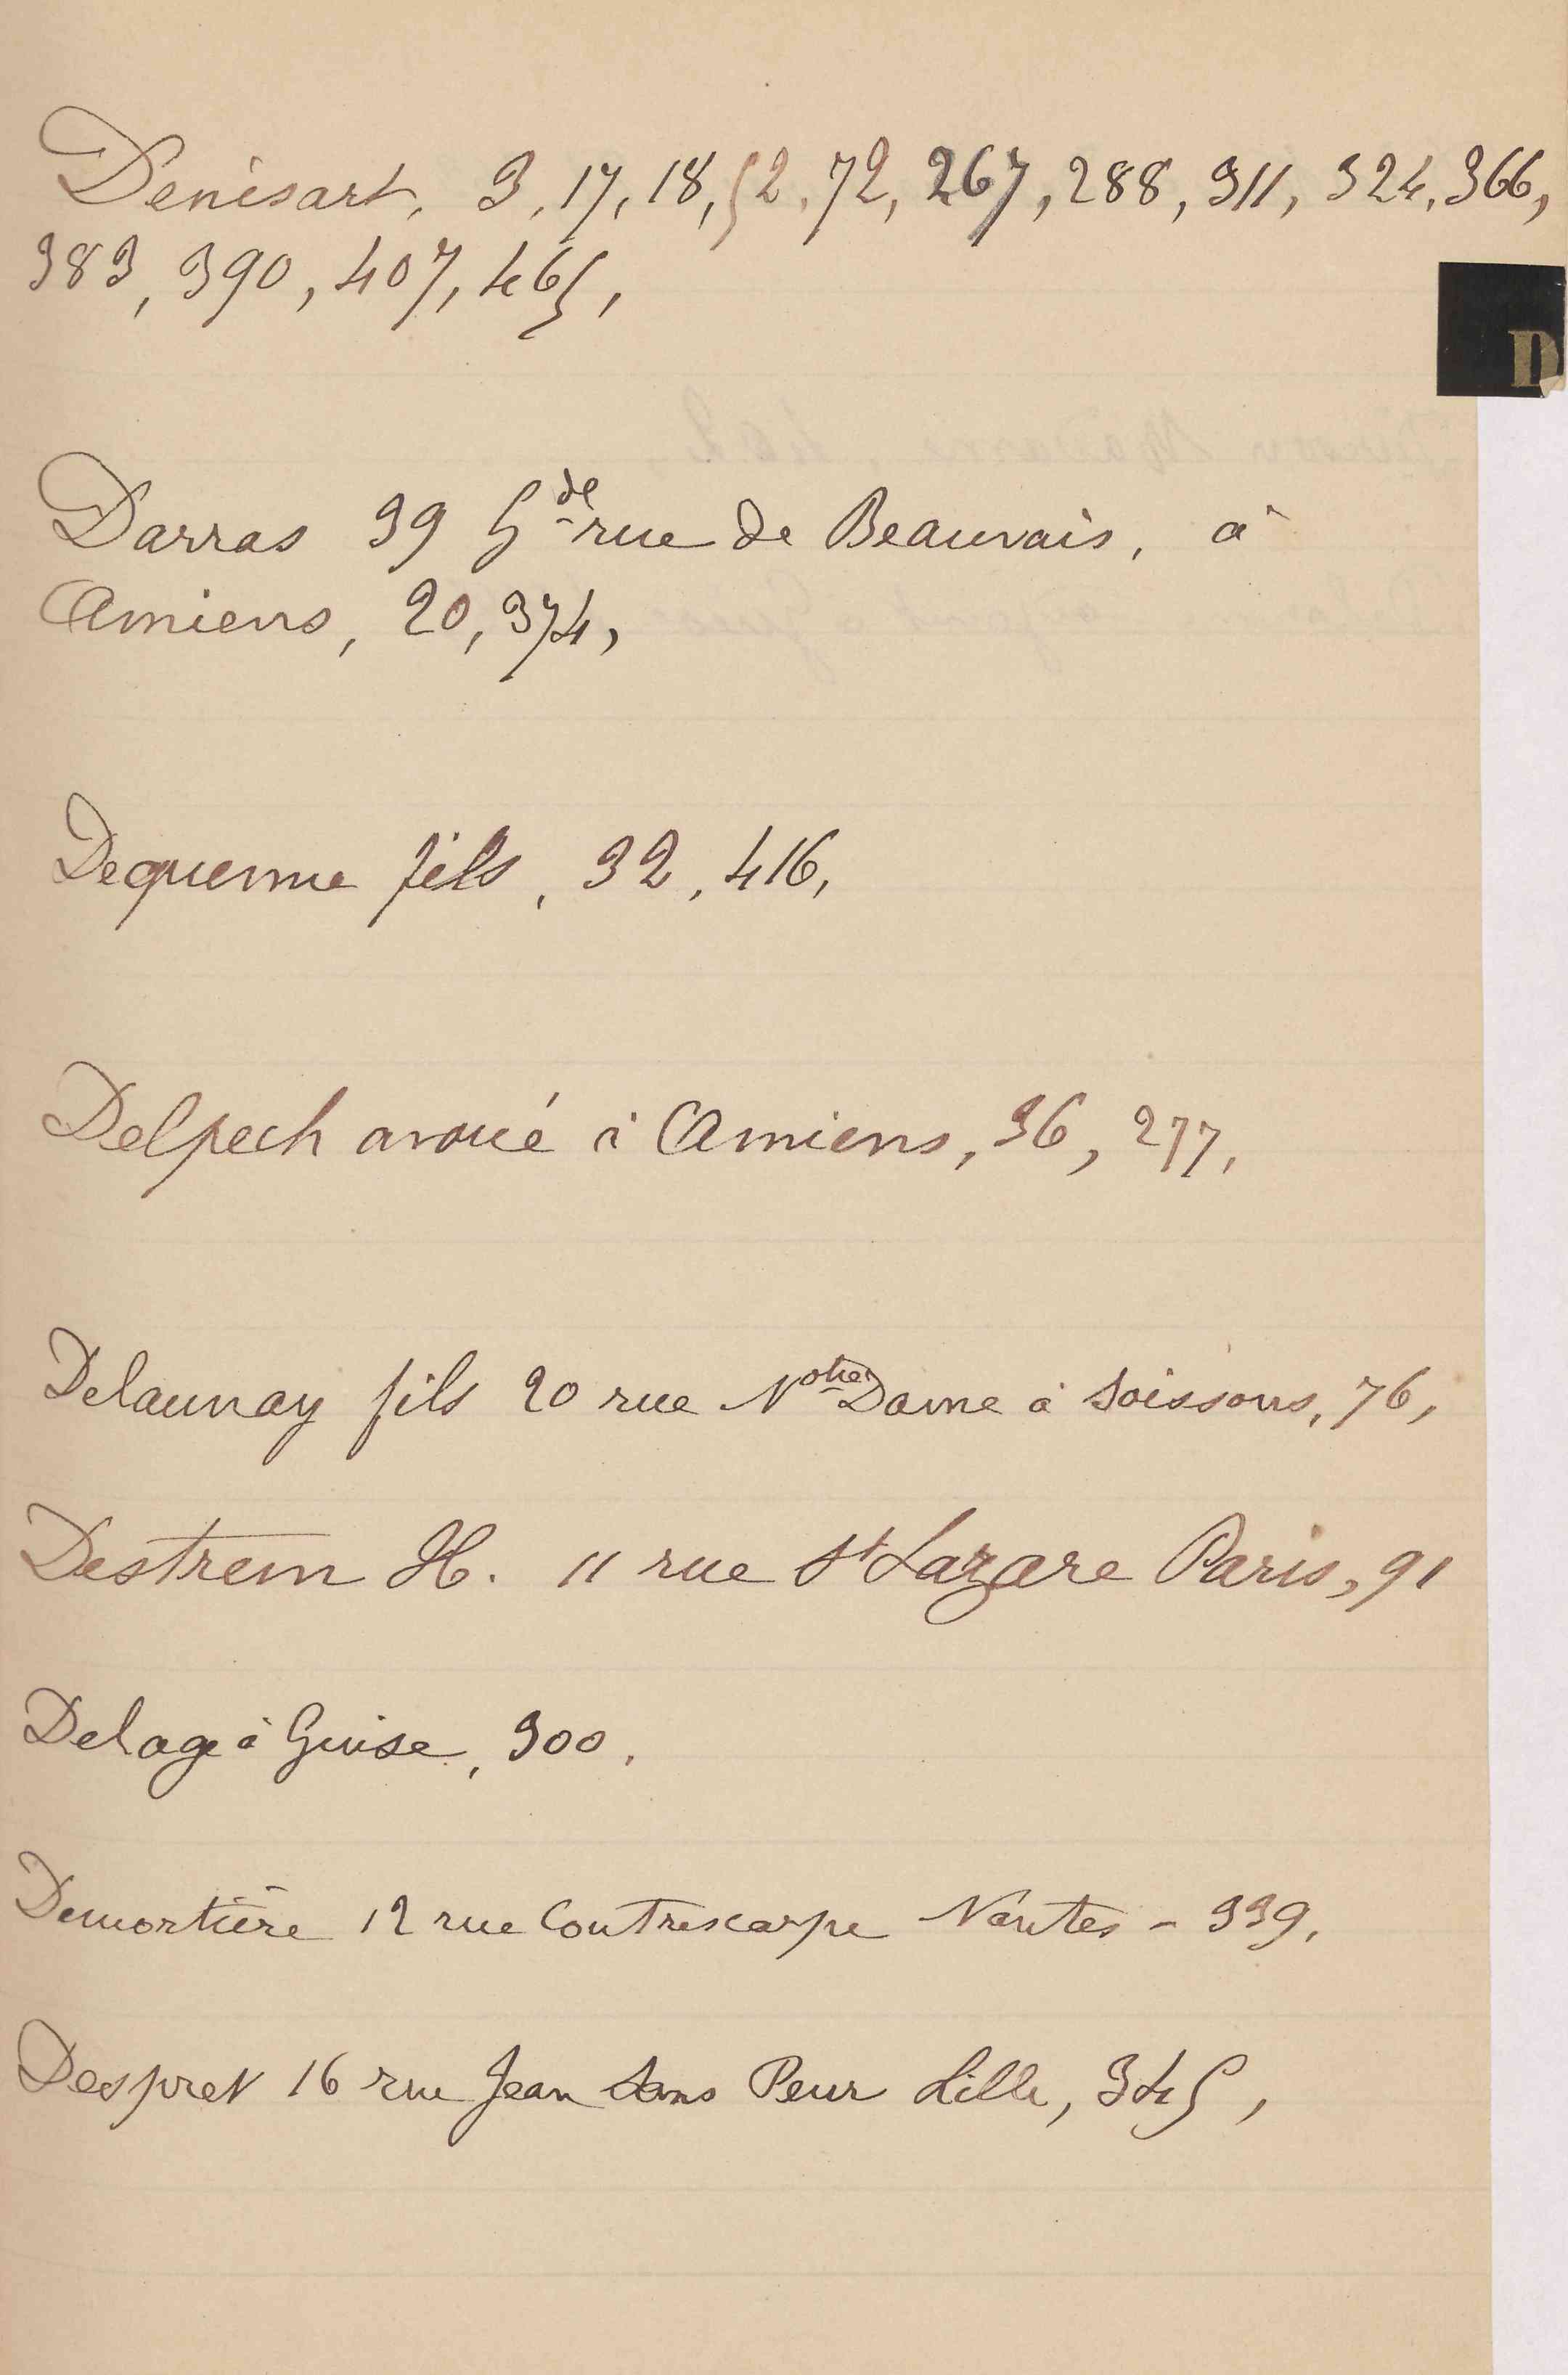 Denisart, 3, 17, 18, 52, 72, 267, 288, 311, 324, 366,
383, 390, 407, 465,
D
Darras 39 Gde rue de Beauvais, à
Amiens, 20, 374,
Dequenne fils, 32, 416,
Delpech avoué à Amiens, 36, 277,
Delaunay fils 20 rue Notre Dame à Soissons, 76,
Destrem H. 11 rue St Lazare Paris, 91
Delage à Guise, 300.
Demortière 12 rue Contrescarpe Nantes - 339,
Despret 16 rue Jean Sans Peur Lille, 345,